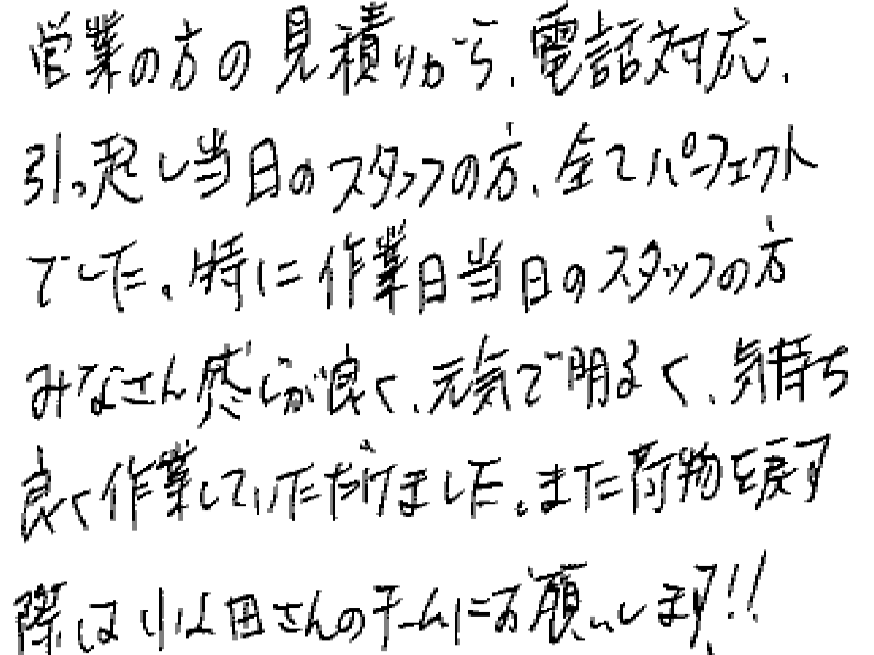 営業の方の見積りから、電話対応、
引っ越し当日のスタッフの方、全てパーフェクト
でした。特に作業日当日のスタッフの方
みなさん感じが良く、元気で明るく、気持ち
良く作業していただけました。また荷物を戻す
際は小山田さんのチームにお願いします!!